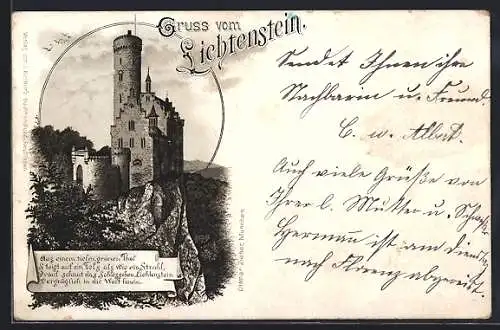 Gruss vom
Lichtenstein.
Aus einem tiefen grünen Thal
Steigt auf ein Fels als wie ein Strahl,
Drauf schaut das Schlösschen Lichtenstein
Vergnüglich in die Welt hinein.
Ottmar Zieher, München
Sendet Ihnen ihre
Nachbarin u. Freund.
C. w. Albert.
Auch viele Grüße von
Ihrer l. Mutter u.
Hermann ist am Dienstag
nach Florenz abgereist.